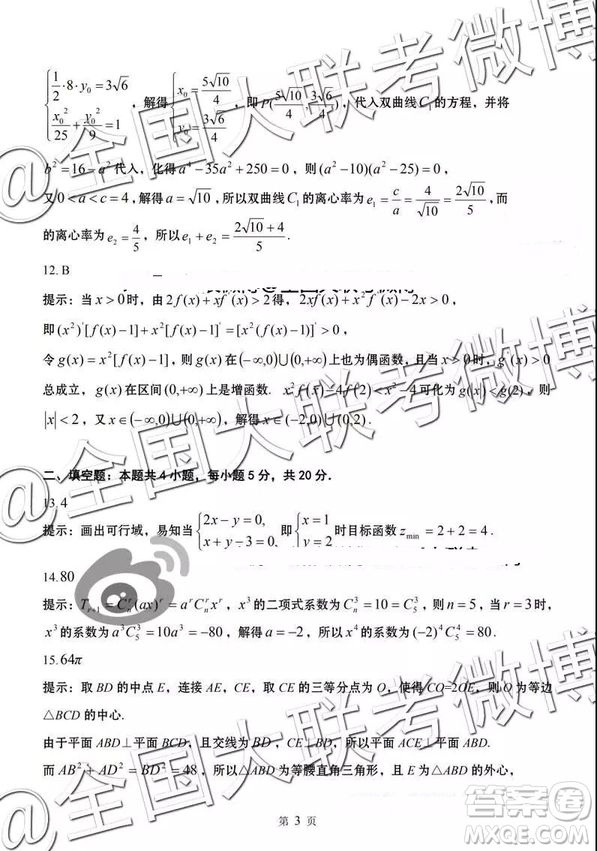 { 1/2·8·y₀=3√6, x₀²/25+y₀²/9=1 ，解得 { x₀=5√10/4, y₀=3√6/4 ，即 P(5√10/4, 3√6/4)，代入双曲线 C₁ 的方程，并将
b²=16-a²代入，化得 a⁴-35a²+250=0，则(a²-10)(a²-25)=0，
又 0<a<c=4，解得 a=√10，所以双曲线 C₁ 的离心率为 e₁=c/a=4/√10=2√10/5，而
的离心率为 e₂=4/5，所以 e₁+e₂=(2√10+4)/5．
12. B
提示：当 x>0时，由 2f(x)+xf′(x)>2得，2xf(x)+x²f′(x)-2x>0，
即(x²)′[f(x)-1]+x²[f(x)-1]′=[x²(f(x)-1)]′>0，
令 g(x)=x²[f(x)-1]，则 g(x)在(-∞,0)∪(0,+∞)上也为偶函数，且当 x>0时，g′(x)>0
总成立，g(x)在区间(0,+∞)上是增函数．x²f(x)-4f(2)<x²-4可化为 g(x)<g(2)，则
|x|<2，又 x∈(-∞,0)∪(0,+∞)，解得 x∈(-2,0)∪(0,2)．
二、填空题：本题共4小题，每小题5分，共20分．
13.4
提示：画出可行域，易知当 { 2x-y=0, x+y-3=0, 即 { x=1 y=2 时目标函数 z_min=2+2=4．
14.80
提示：T_{r+1}=C_n^r(ax)^r=a^r C_n^r x^r，x³的二项式系数为 C_n^3=10=C_5^3，则 n=5，当 r=3时，
x³的系数为 a³C_5^3=10a³=-80，解得 a=-2，所以 x⁴的系数为(-2)⁴C_5^4=80．
15.64π
提示：取 BD 的中点 E，连接 AE，CE，取 CE 的三等分点为 O，使得 CO=2OE，则 O 为等边
△BCD 的中心．
由于平面 ABD⊥平面 BCD，且交线为 BD，CE⊥BD，所以平面 ACE⊥平面 ABD．
而 AB²+AD²=BD²=48，所以△ABD 为等腰直角三角形，且 E 为△ABD 的外心，
第 3 页
@全国大联考微博
答案卷
MXQE.COM